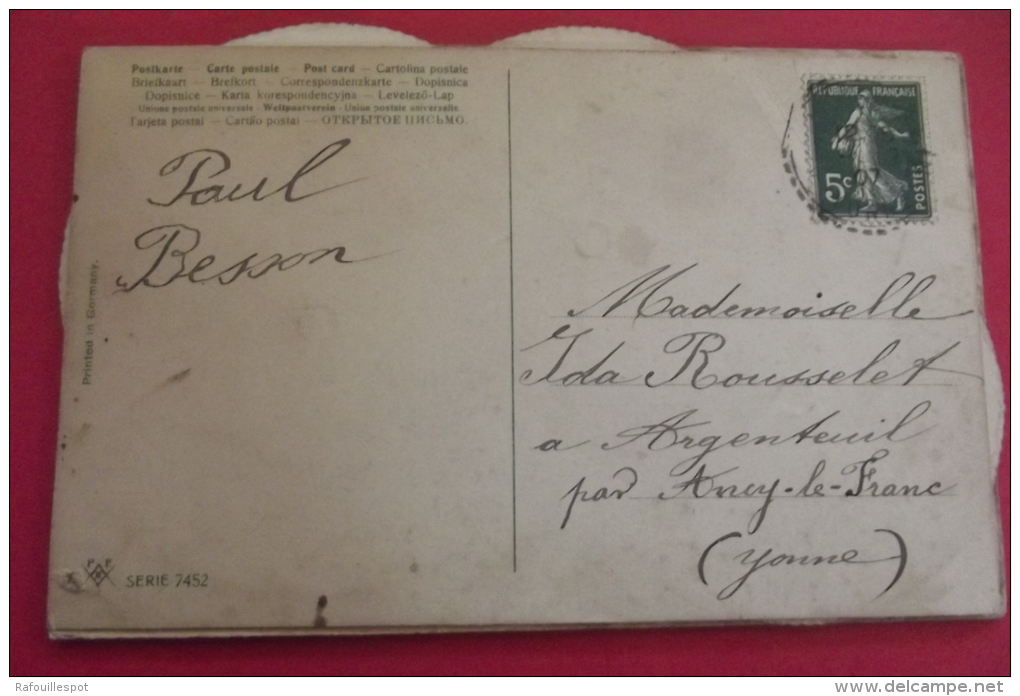 Postkarte – Carte postale – Post card – Cartolina postale
Briefkaart – Brefkort – Correspondenzkarte – Dopisnica
Dopisnice – Karta korespondencyjna – Levelező-Lap
Unione postale universale – Weltpostverein – Union postale universelle.
Tarjeta postal – Cartão postal – ОТКРЫТОЕ ПИСЬМО.
Paul
Besson
Printed in Germany.
SERIE 7452
REPUBLIQUE FRANÇAISE
5c
POSTES
07
Mademoiselle
Ida Rousselet
a Argenteuil
par Ancy-le-Franc
(Yonne)
Rafouillespot
delcampe.net